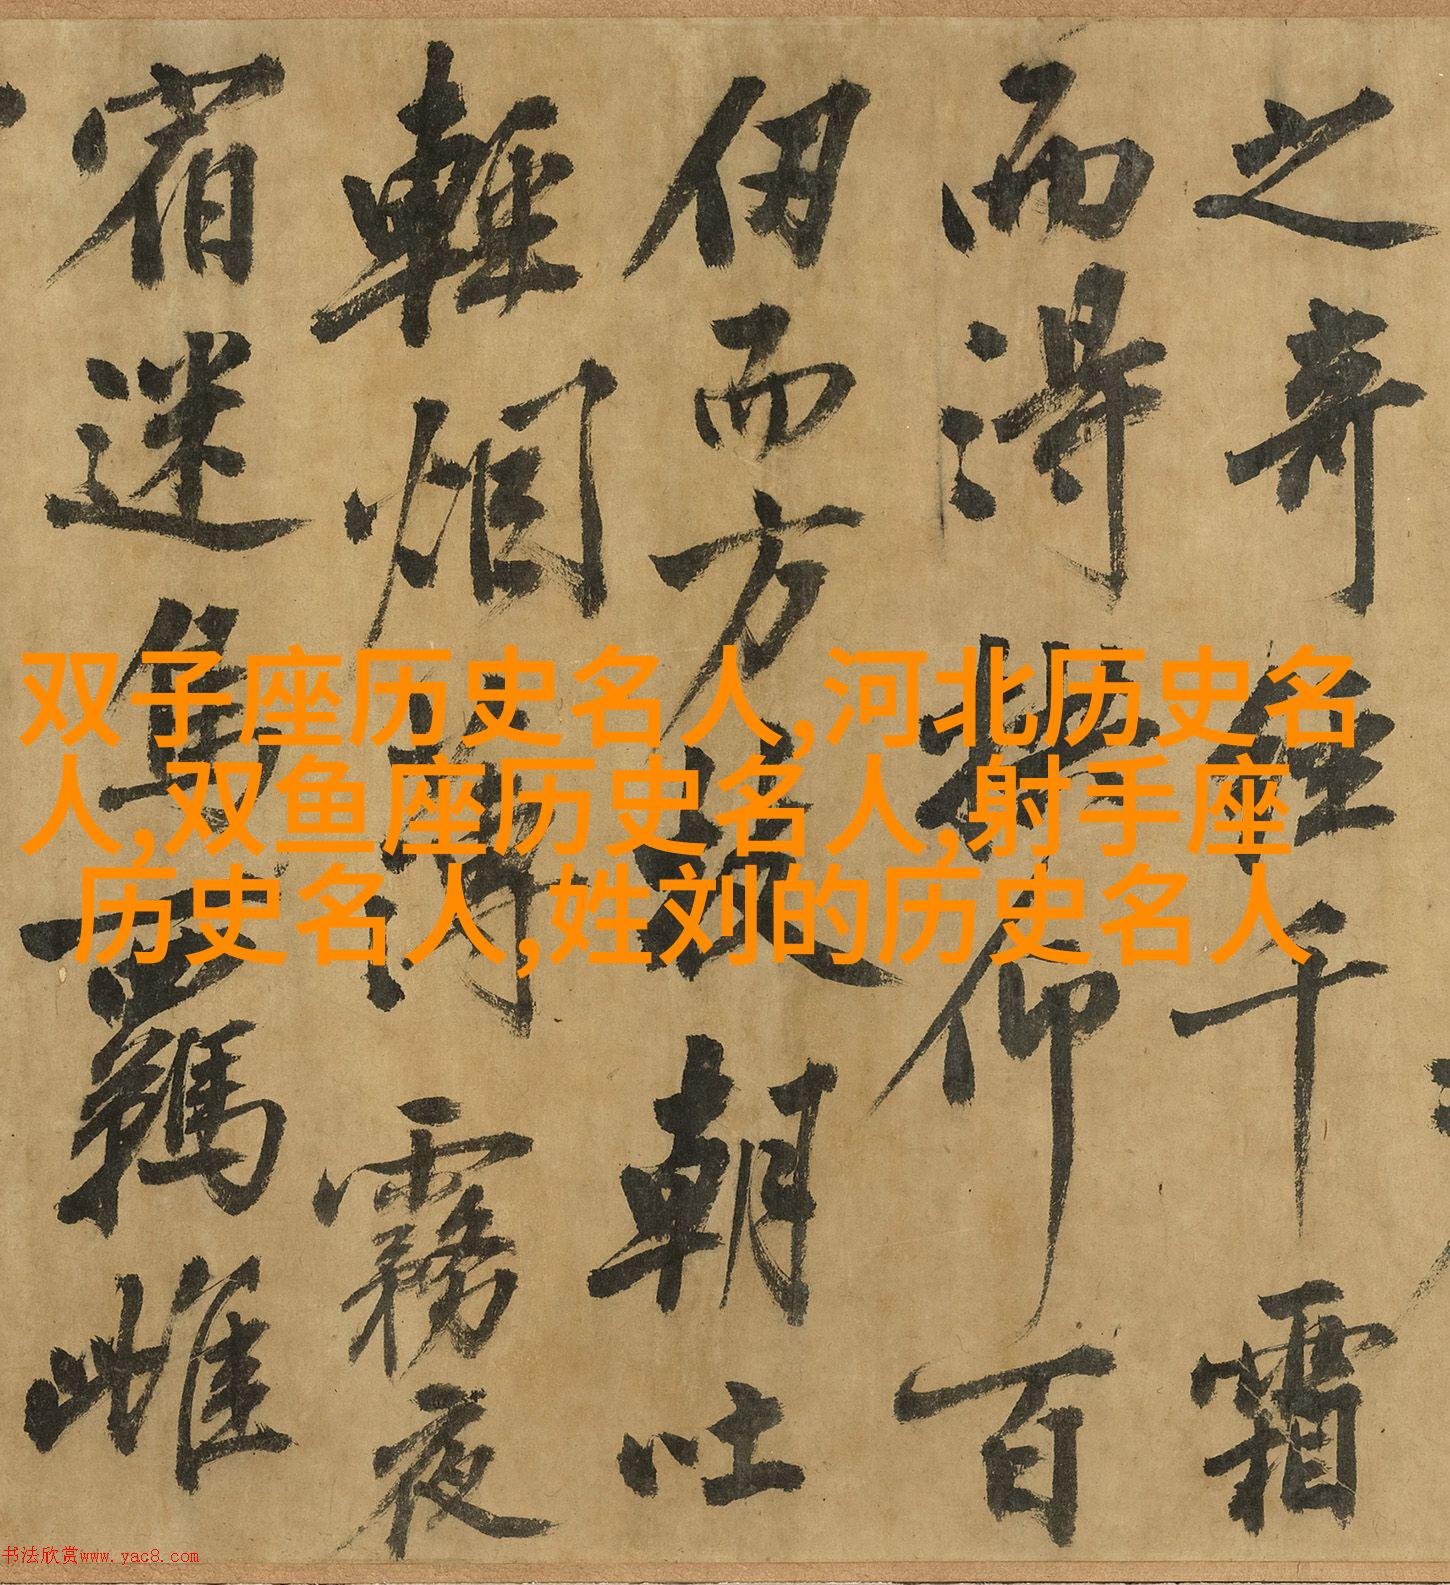 之奇經千霜
而得拱仰百
仞而方枝朝吐
輕烟薄霧夜
宿迷鳥羈雌
双子座历史名人,河北历史名
人,双鱼座历史名人,射手座
历史名人,姓刘的历史名人
书法欣赏www.yac8.com